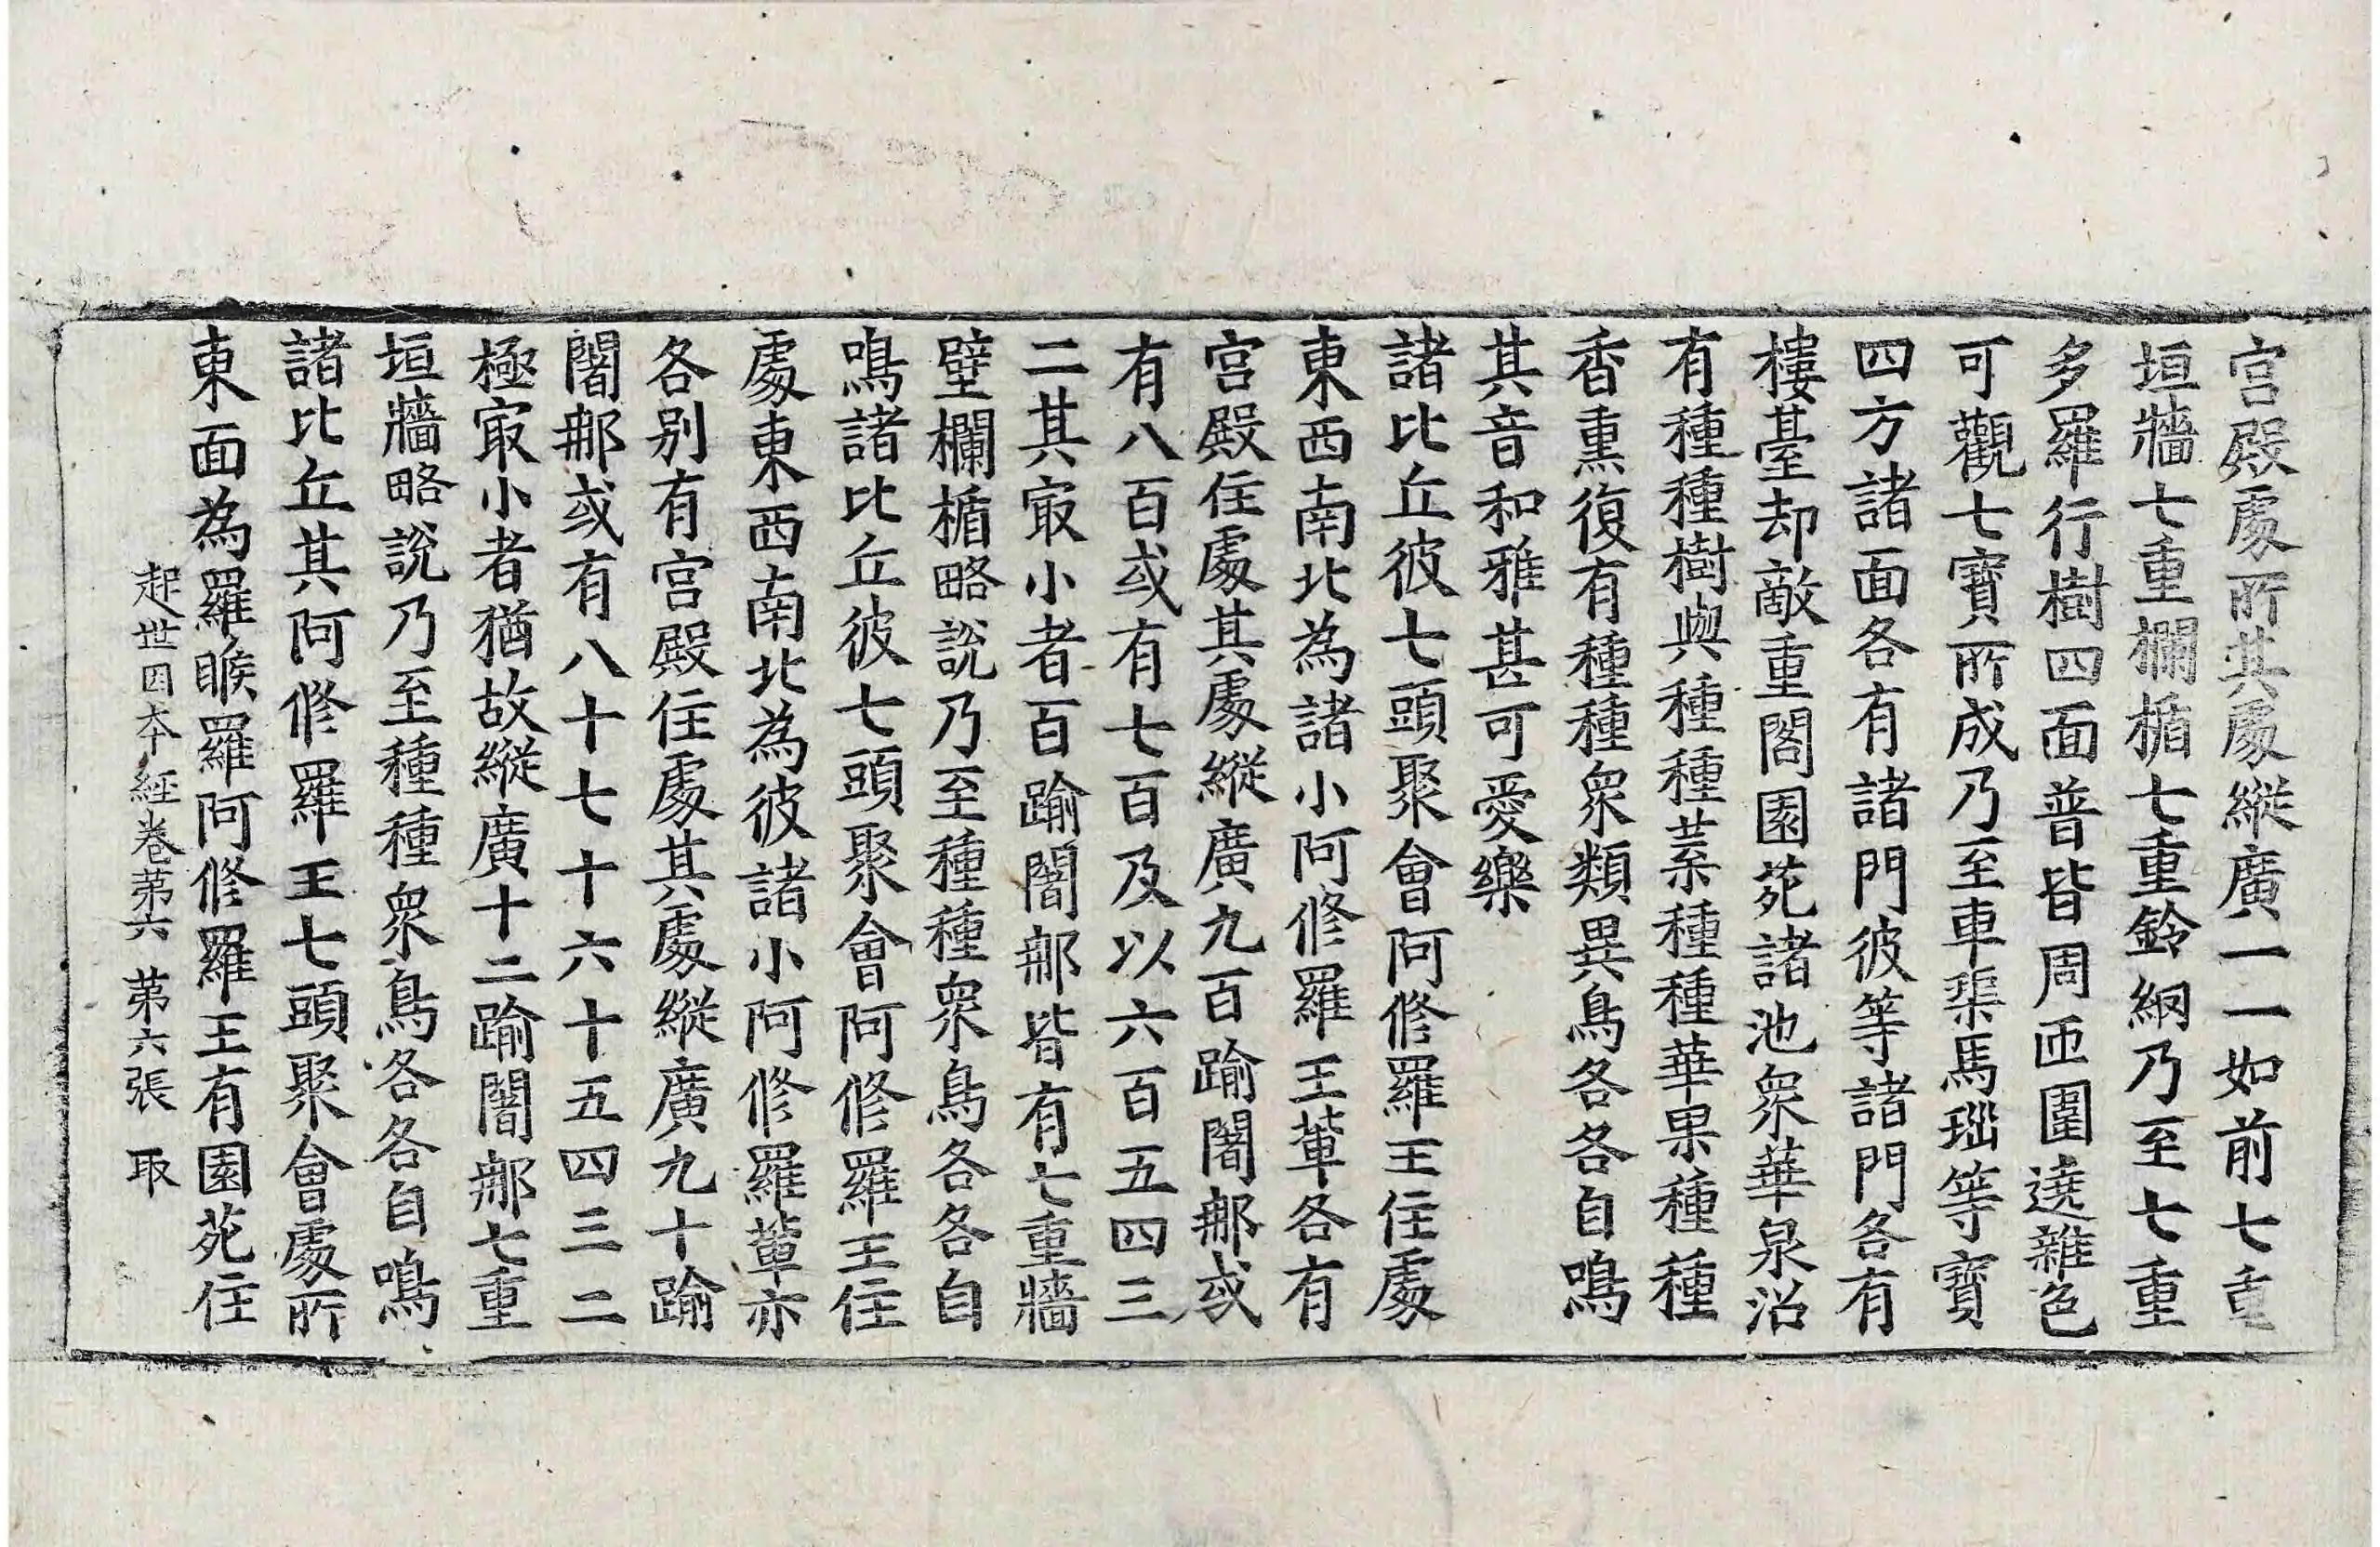 宮殿處所其處縱廣一一如前七重
垣牆七重欄楯七重鈴網乃至七重
多羅行樹四面普皆周匝圍遶雜色
可觀七寶所成乃至車渠馬瑙等寶
四方諸面各有諸門彼等諸門各有
樓臺却敵重閣園苑諸池眾華泉沼
有種種樹與種種葉種種華果種種
香熏復有種種眾類異鳥各各自鳴
其音和雅甚可愛樂
諸比丘彼七頭聚會阿修羅王住處
東西南北為諸小阿修羅王輩各有
宮殿住處其處縱廣九百踰闍那或
有八百或有七百及以六百五四三
二其冣小者百踰闍那皆有七重牆
壁欄楯略說乃至種種眾鳥各各自
鳴諸比丘彼七頭聚會阿修羅王住
處東西南北為彼諸小阿修羅輩亦
各別有宮殿住處其處縱廣九十踰
闍那或有八十七十六十五四三二
極冣小者猶故縱廣十二踰闍那七重
垣牆略說乃至種種眾鳥各各自鳴
諸比丘其阿修羅王七頭聚會處所
東面為羅睺羅阿修羅王有園苑住
起世因本經卷第六 第六張 取